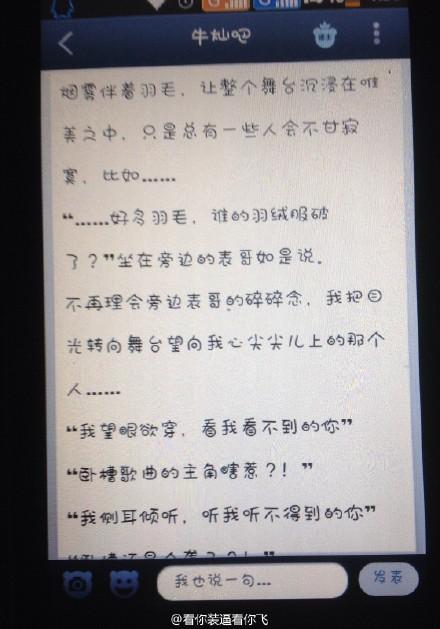 牛灿吧
烟雾伴着羽毛，让整个舞台沉浸在唯
美之中，只是总有一些人会不甘寂
寞，比如……
“……好多羽毛，谁的羽绒服破
了？”坐在旁边的表哥如是说。
不再理会旁边表哥的碎碎念，我把目
光转向舞台望向我心尖尖儿上的那个
人……
“我望眼欲穿，看我看不到的你”
“卧槽歌曲的主角瞎惹？！”
“我侧耳倾听，听我听不得到的你”
我也说一句...
发表
@看你装逼看你飞